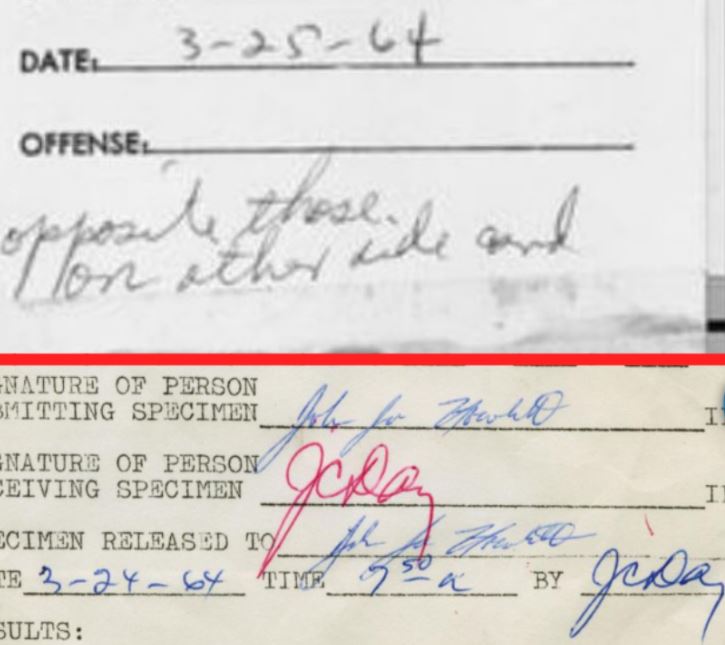 DATE: 3-25-64
OFFENSE:
opposite those.
on other side and
GNATURE OF PERSON
BMITTING SPECIMEN John Joe Howlett I
GNATURE OF PERSON
CEIVING SPECIMEN JCDay I
ECIMEN RELEASED TO John Joe Howlett
TE 3-24-64 TIME 7 50 a BY JCDay
SULTS: